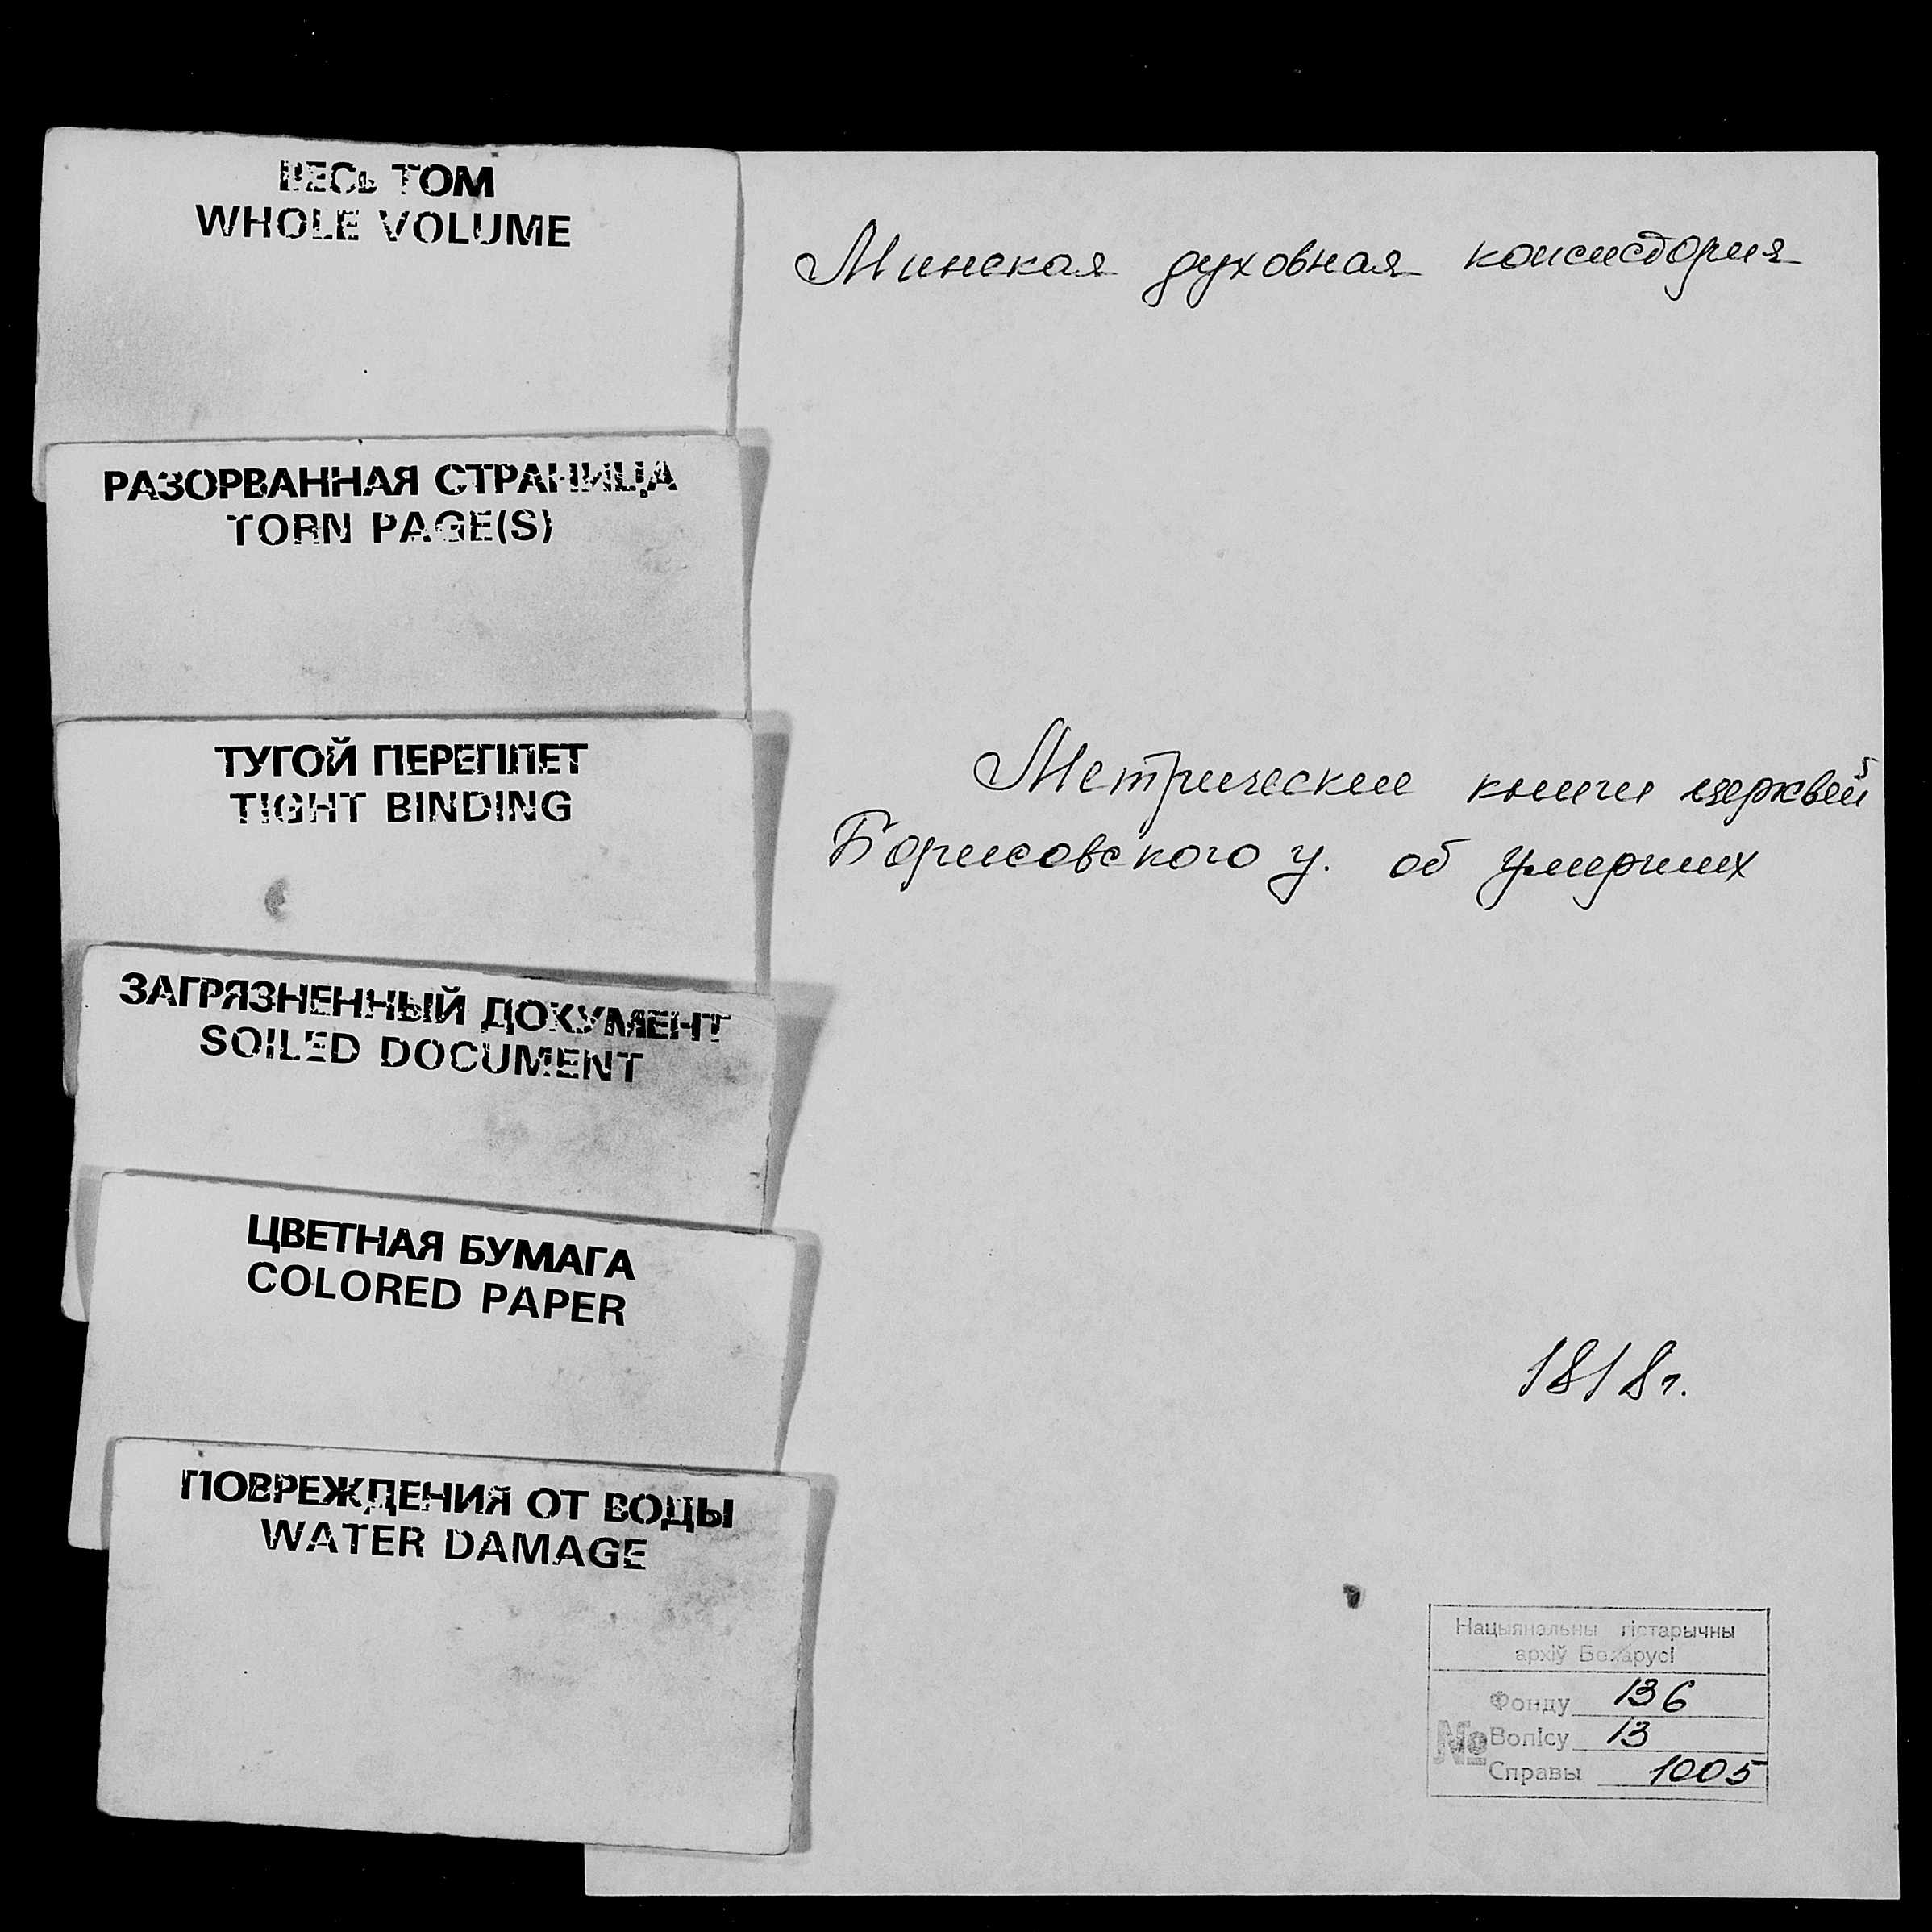 ВЕСЬ ТОМ
WHOLE VOLUME
РАЗОРВАННАЯ СТРАНИЦА
TORN PAGE(S)
ТУГОЙ ПЕРЕПЛЕТ
TIGHT BINDING
ЗАГРЯЗНЕННЫЙ ДОКУМЕНТ
SOILED DOCUMENT
ЦВЕТНАЯ БУМАГА
COLORED PAPER
ПОВРЕЖДЕНИЯ ОТ ВОДЫ
WATER DAMAGE
Минская духовная консистория
Метрические книги церквей
Борисовского у. об умерших
1818 г.
Нацыянальны гістарычны
архіў Беларусі
Фонду 136
№ Вопісу 13
Справы 1005